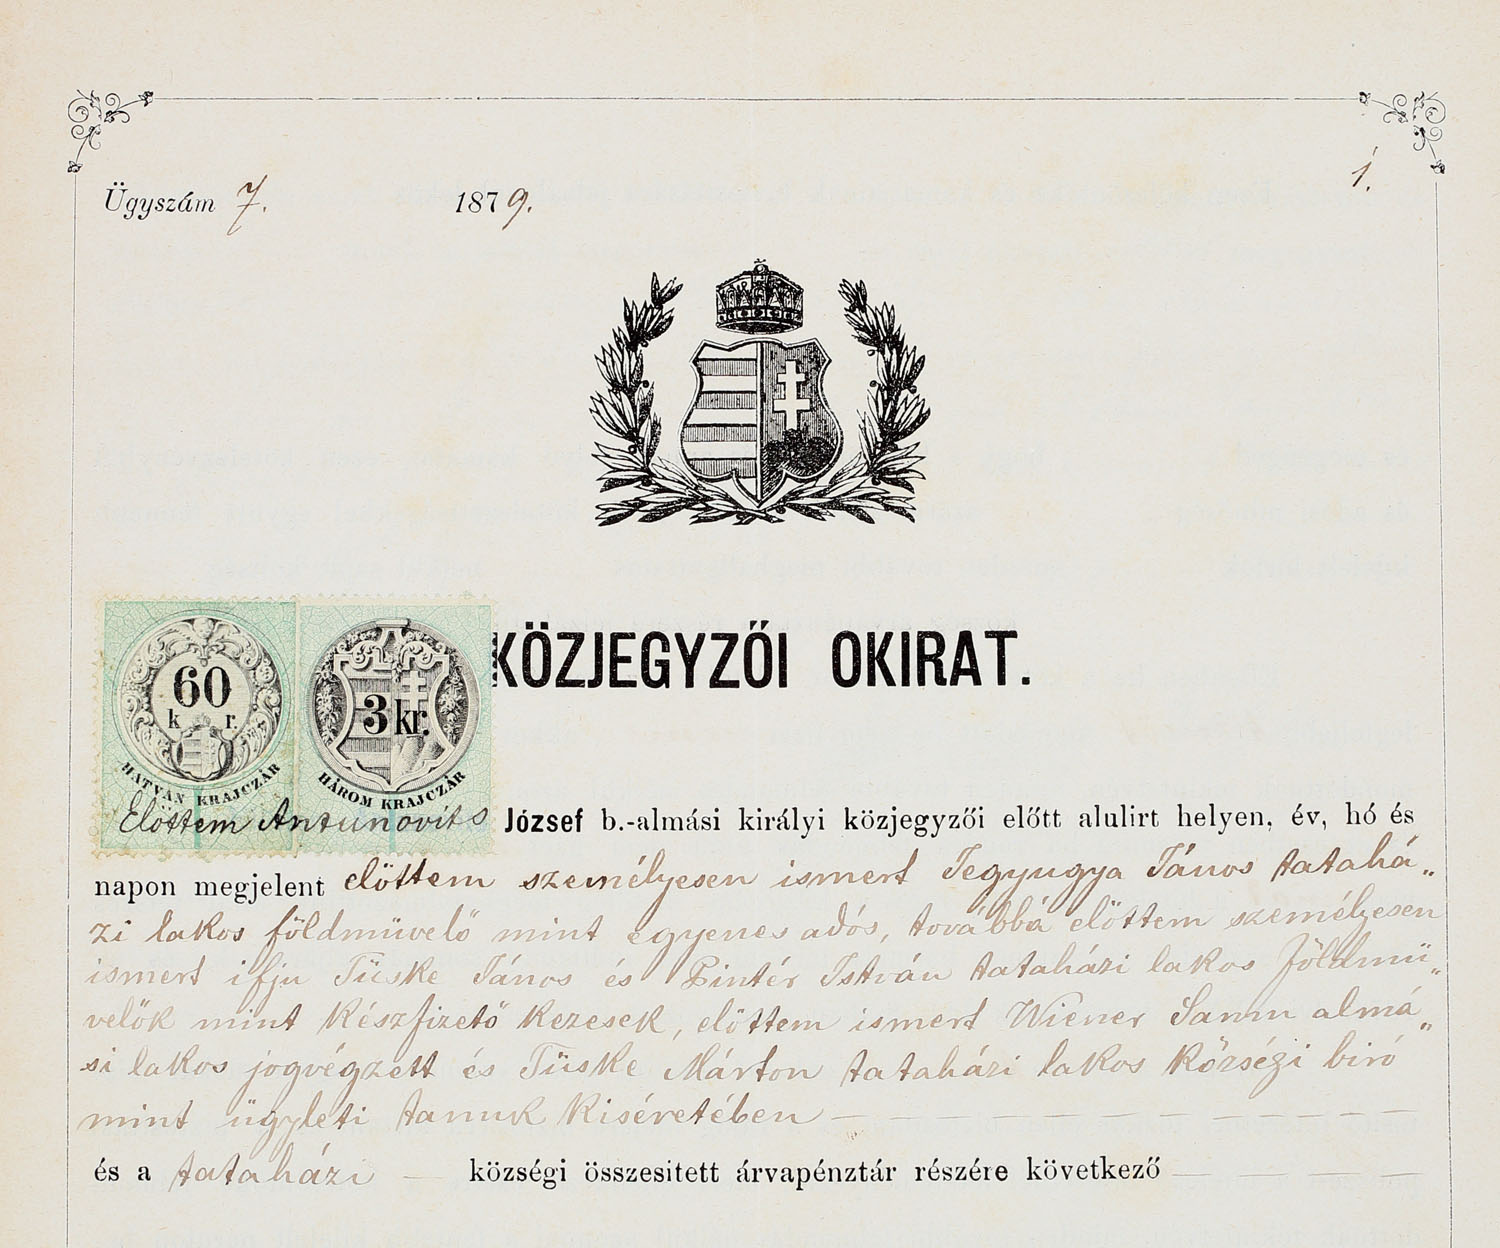 Ügyszám 7. 1879. 1.
60
k r.
HATVAN KRAJCZÁR
3 kr.
HÁROM KRAJCZÁR
KÖZJEGYZŐI OKIRAT.
Előttem Antunovits József b.-almási királyi közjegyzői előtt alulirt helyen, év, hó és
napon megjelent előttem személyesen ismert Tegyugya János tatahá„
zi lakos földmüvelő mint egyenes adós, továbbá előttem személyesen
ismert ifju Tüske János és Pintér István tataházi lakos földmü„
velök mint készfizető kezesek, előttem ismert Wiener Samu almá„
si lakos jogvégzett és Tüske Márton tataházi lakos községi biró
mint ügyleti tanuk kiséretében
és a tataházi községi összesitett árvapénztár részére következő